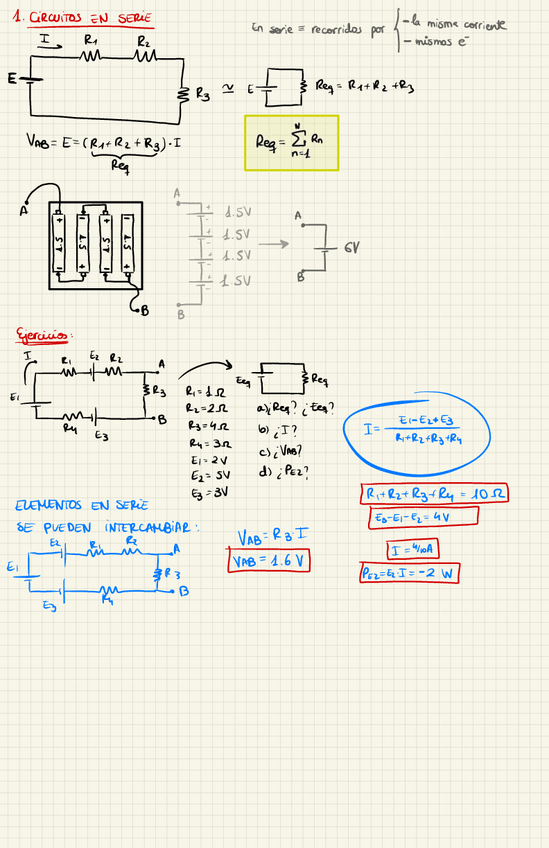 1. CIRCUITOS EN SERIE
En serie ≡ recorridos por
- la misma corriente
- mismos e⁻
I R1 R2
E R3 ≃ E Req = R1+R2+R3
VAB = E = (R1+R2+R3)·I
Req
Req = N Σ n=1 Rn
A
1.5 1.5 1.5 1.5
B
A
1.5V
1.5V
1.5V
1.5V
B
A
6V
B
Ejercicios:
I R1 E2 R2 A
R3
E1
R4 E3 B
R1 = 1Ω
R2 = 2Ω
R3 = 4Ω
R4 = 3Ω
E1 = 2V
E2 = 5V
E3 = 3V
Eeq Req
a) ¿Req? ¿Eeq?
b) ¿I?
c) ¿VAB?
d) ¿PE2?
I = E1-E2+E3 / R1+R2+R3+R4
R1+R2+R3+R4 = 10Ω
E3-E1-E2 = 4V
I = 4/10A
PE2 = E2·I = -2 W
ELEMENTOS EN SERIE
SE PUEDEN INTERCAMBIAR:
E2 R1 R2 A
E1 R3
E3 R4 B
VAB = R3 I
VAB = 1.6 V